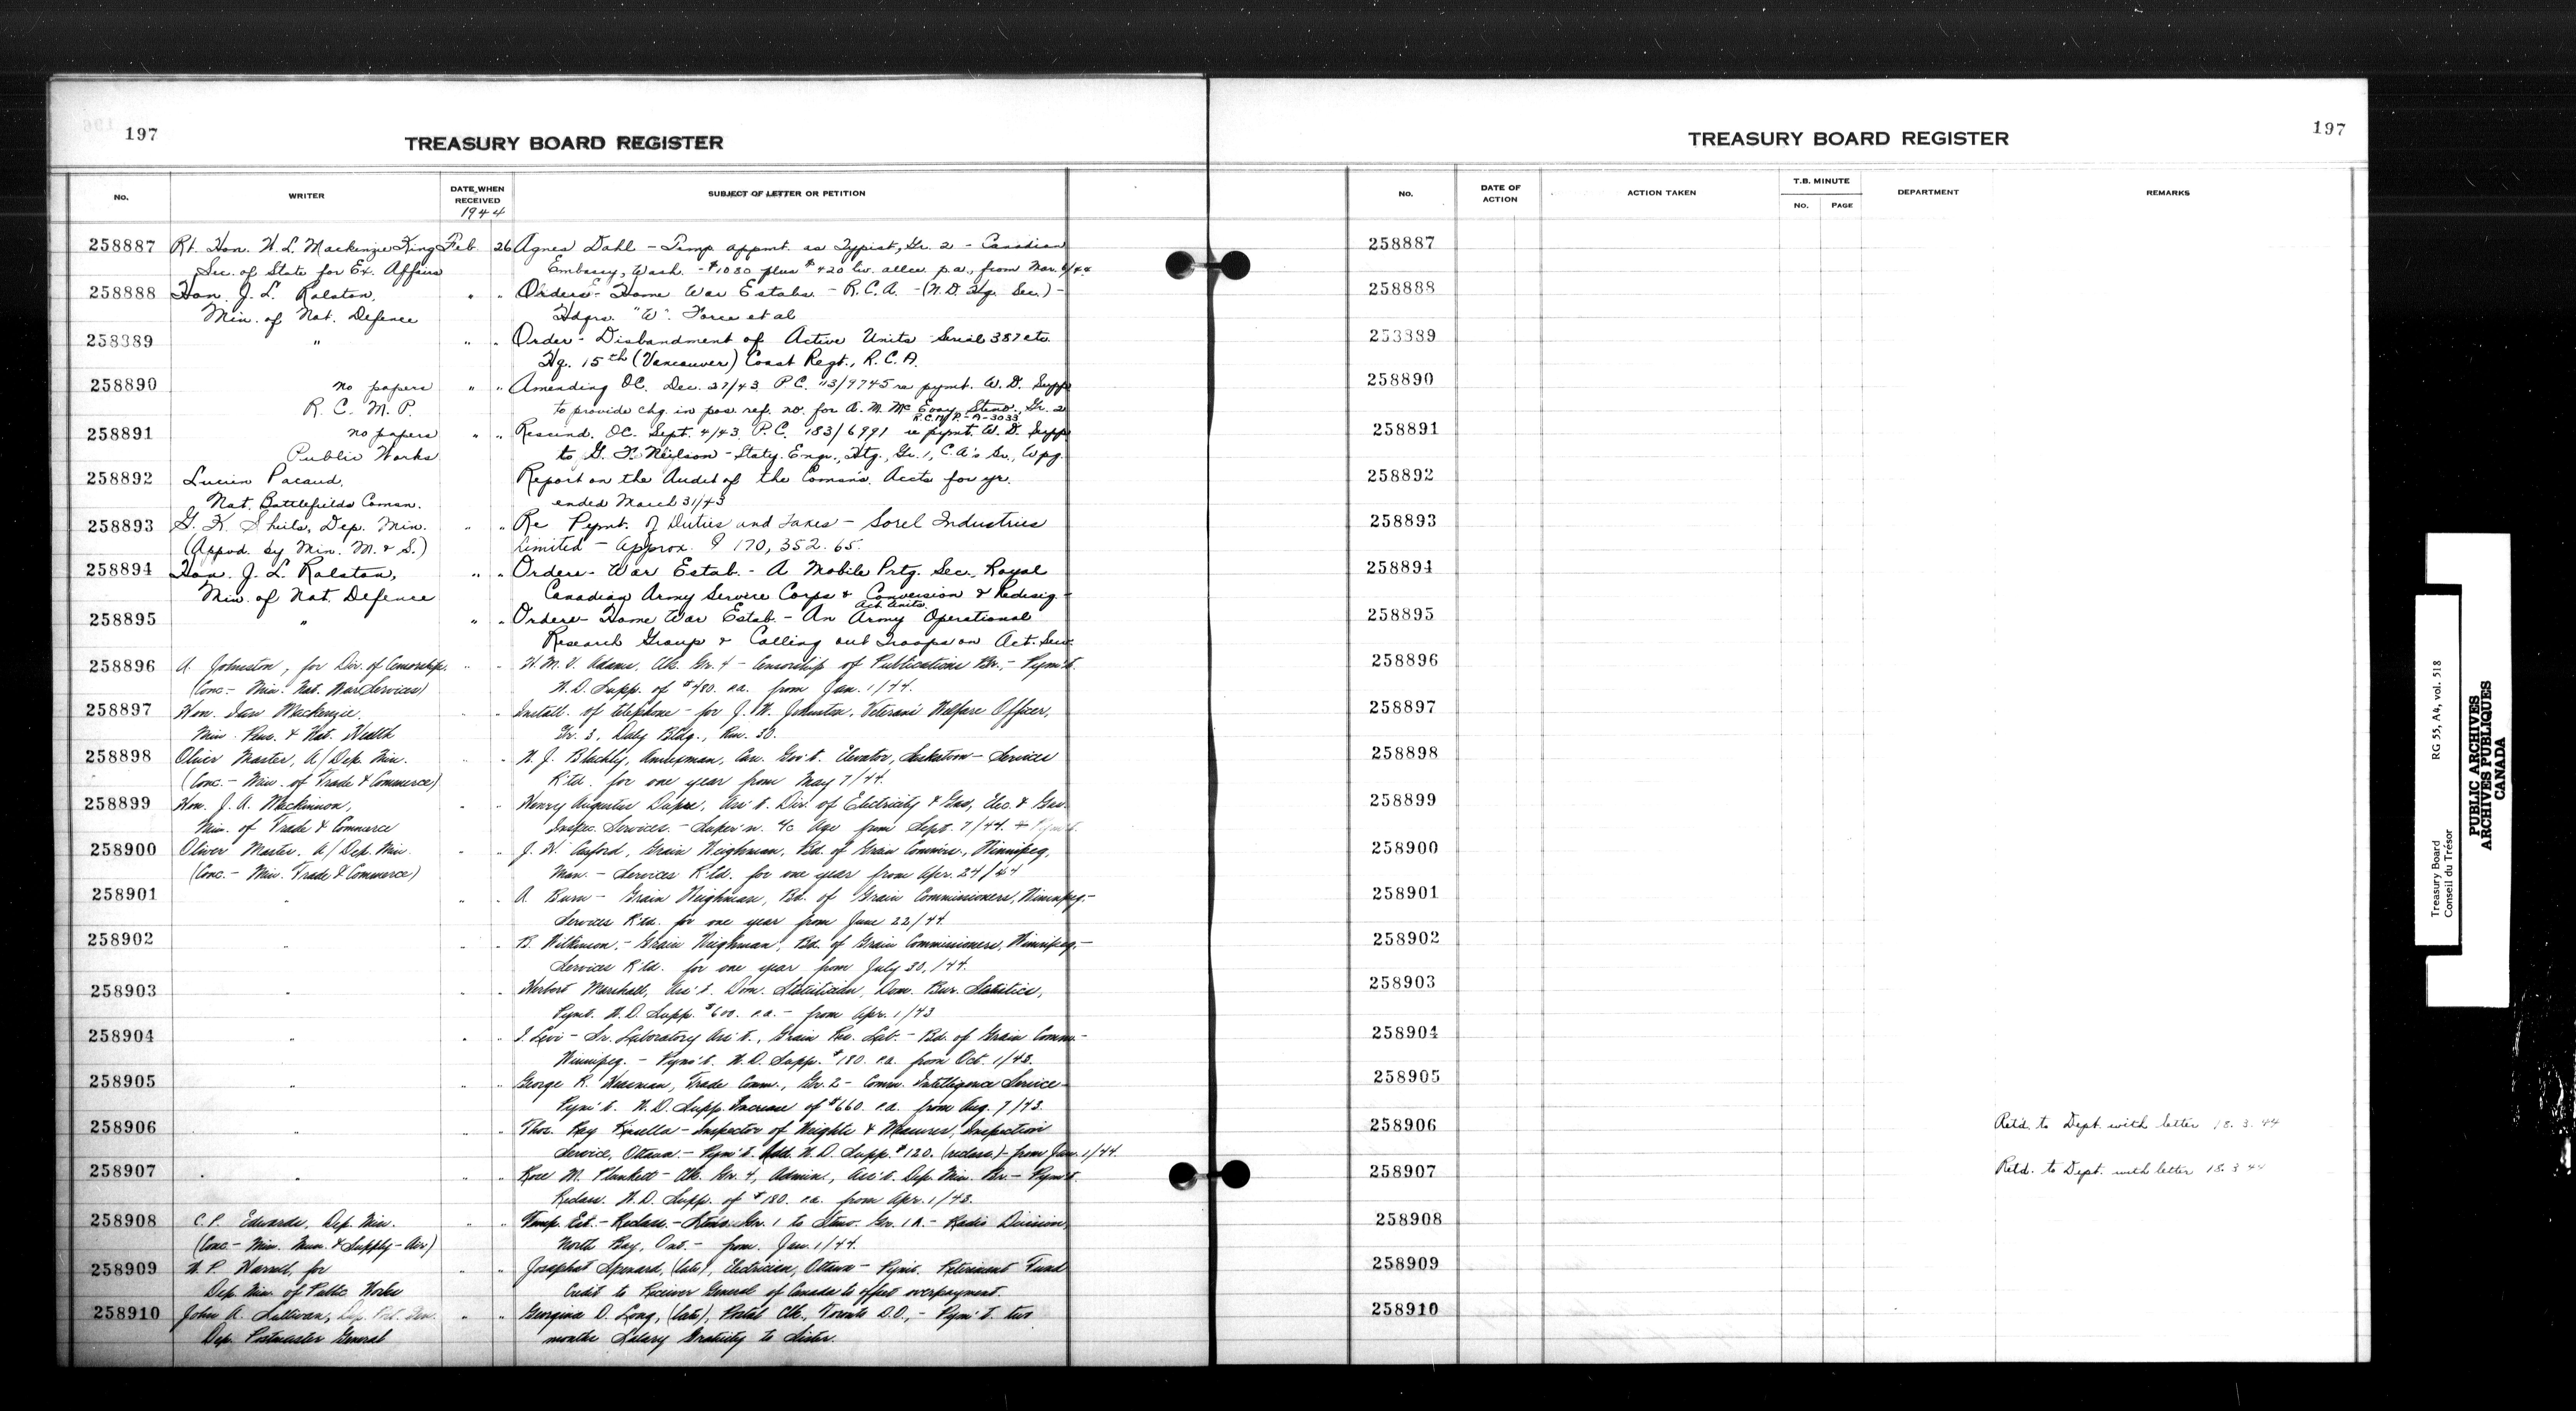 197
TREASURY BOARD REGISTER
No.
WRITER
DATE WHEN RECEIVED
1944
SUBJECT OF LETTER OR PETITION
258887 Rt. Hon. W. L. Mackenzie King Feb 26 Agnes Dahl - Temp. appmt. as Typist, Gr. 2 - Canadian
Sec. of State for Ex. Affairs Embassy, Wash. - $1080 plus $420 liv. allce. p.a., from Mar. /44
258888 Hon. J. L. Ralston, " " Orders - Home War Estabs. - R.C.A. - (N.D. Hq. Sec.) -
Min. of Nat. Defence Hdqrs. "W". Force et al
258889 " " " Order - Disbandment of Active Units Serial 387 etc.
Hq. 15th (Vancouver) Coast Regt., R.C.A.
258890 no papers " " Amending OC. Dec. 27/43 P.C. 113/9745 re pymt. W.D. Supp
R.C.M.P. to provide chg. in pos. ref. no. for A. M. McEvoy, Steno., Gr. 2
R.C.M.P. - A - 3033
258891 no papers " " Rescind. OC. Sept. 4/43 P.C. 183/6991 re pymt. W.D. Supp
Public Works to G. F. Neilson - Staty. Engr., Htg., Gr. 1, C.A's Sv., Wpg.
258892 Lucien Pacaud, Report on the Audit of the Comsn's. Accts for yr.
Nat. Battlefields Comsn. ended March 31/43
258893 G. K. Sheils, Dep. Min. " " Re Pymt. of Duties and Taxes - Sorel Industries
(Appvd. by Min. M. & S.) Limited - Approx. $170,352.65.
258894 Hon. J. L. Ralston, " " Orders - War Estab. - A Mobile Prtg. Sec., Royal
Min. of Nat. Defence Canadian Army Service Corps & Conversion & Redesig.
Act. Units.
258895 " " " Orders - Home War Estab. - An Army Operational
Research Group & Calling out Troops on Act. Serv.
258896 A. Johnston, for Dir. of Censorship. " " W. M. V. Adams, Clk. Gr. 4 - Censorship of Publications Br. - Pym't.
(Conc - Min. Nat. War Services) W.D. Supp. of $480. p.a. from Jan. 1/44.
258897 Hon. Ian Mackenzie, " " Install. of telephone - for J. W. Johnston, Veterans Welfare Officer,
Min. Pens. & Nat. Health Gr. 3, Daly Bldg., Rm. 30.
258898 Oliver Master, A/Dep. Min. " " N. J. Blachly, Can. Gov't. Elevator, Saskatoon - Services
(Conc - Min. of Trade & Commerce) R'td. for one year from May 7/44.
258899 Hon. J. A. Mackinnon, " " Henry Augustus Dupre, Ass't. Dir. of Electricity & Gas, Elec. & Gas
Min. of Trade & Commerce Inspec. Services. - Super'n. a/c Age from Sept. 7/44.
258900 Oliver Master, A/Dep. Min. " " J. W. Axford, Grain Weighman, Bd. of Grain Commrs., Winnipeg,
(Conc. - Min. Trade & Commerce) Man. - Services R'td. for one year from Apr. 24/44
258901 " " " A. Burn - Grain Weighman, Bd. of Grain Commissioners, Winnipeg. -
Services R'td. for one year from June 22/44
258902 " " " B. Wilkinson, - Grain Weighman, Bd. of Grain Commissioners, Winnipeg. -
Services R'td. for one year from July 30,/44.
258903 " " " Herbert Marshall, Ass't. Dom. Statistician, Dom. Bur. Statistics,
Pymt. W.D. Supp. $600. p.a. - from Apr. 1/43
258904 " " " I. Levi - Sr. Laboratory Ass't., Grain Res. Lab. - Bd. of Grain Comm. -
Winnipeg. - Pym't. W.D. Supp. $180. p.a. from Oct. 1/43.
258905 " " " George R. Heasman, Trade Comm., Gr. 2 - Comm. Intelligence Service
Pym't. W.D. Supp. Increase of $660. p.a. from Aug. 7/43.
258906 " " " Thos. Ray Kinsella - Inspector of Weights & Measures, Inspection
Service, Ottawa. - Pym't. Add. W.D. Supp. $120. (reclass.) - from Jan. 1/44.
258907 " " " Rose M. Plunkett - Clk. Gr. 4, Admin., Ass't. Dep. Min. Br. - Pym't.
Reclass. W.D. Supp. of $180. p.a. from Apr. 1/43.
258908 C. P. Edwards, Dep. Min. " " Temp. Est. - Reclass. - Steno. Gr. 1 to Steno. Gr. 1A. - Radio Division,
(Conc - Min. Mun. & Supply - Air) North Bay, Ont. - from. Jan. 1/44.
258909 for " " Josephat Spenard, (late), Electrician, Ottawa - Pymt. Retirement Fund
Dep. Min. of Public Works Credit to Receiver General of Canada to offset overpayment.
258910 John A. Sullivan, " " Georgina D. Long, (late), Postal Clk., Toronto D.O., - Pym't. two
Dep. Postmaster General months Salary Gratuity to Sister.
TREASURY BOARD REGISTER
197
No.
DATE OF ACTION
ACTION TAKEN
T.B. MINUTE
No.
PAGE
DEPARTMENT
REMARKS
258887
258888
258889
258890
258891
258892
258893
258894
258895
258896
258897
258898
258899
258900
258901
258902
258903
258904
258905
258906 Retd. to Dept. with letter 18.3.44
258907 Retd. to Dept. with letter 18.3.44
258908
258909
258910
Treasury Board
Conseil du Trésor
RG 55, A4, vol. 518
PUBLIC ARCHIVES
ARCHIVES PUBLIQUES
CANADA